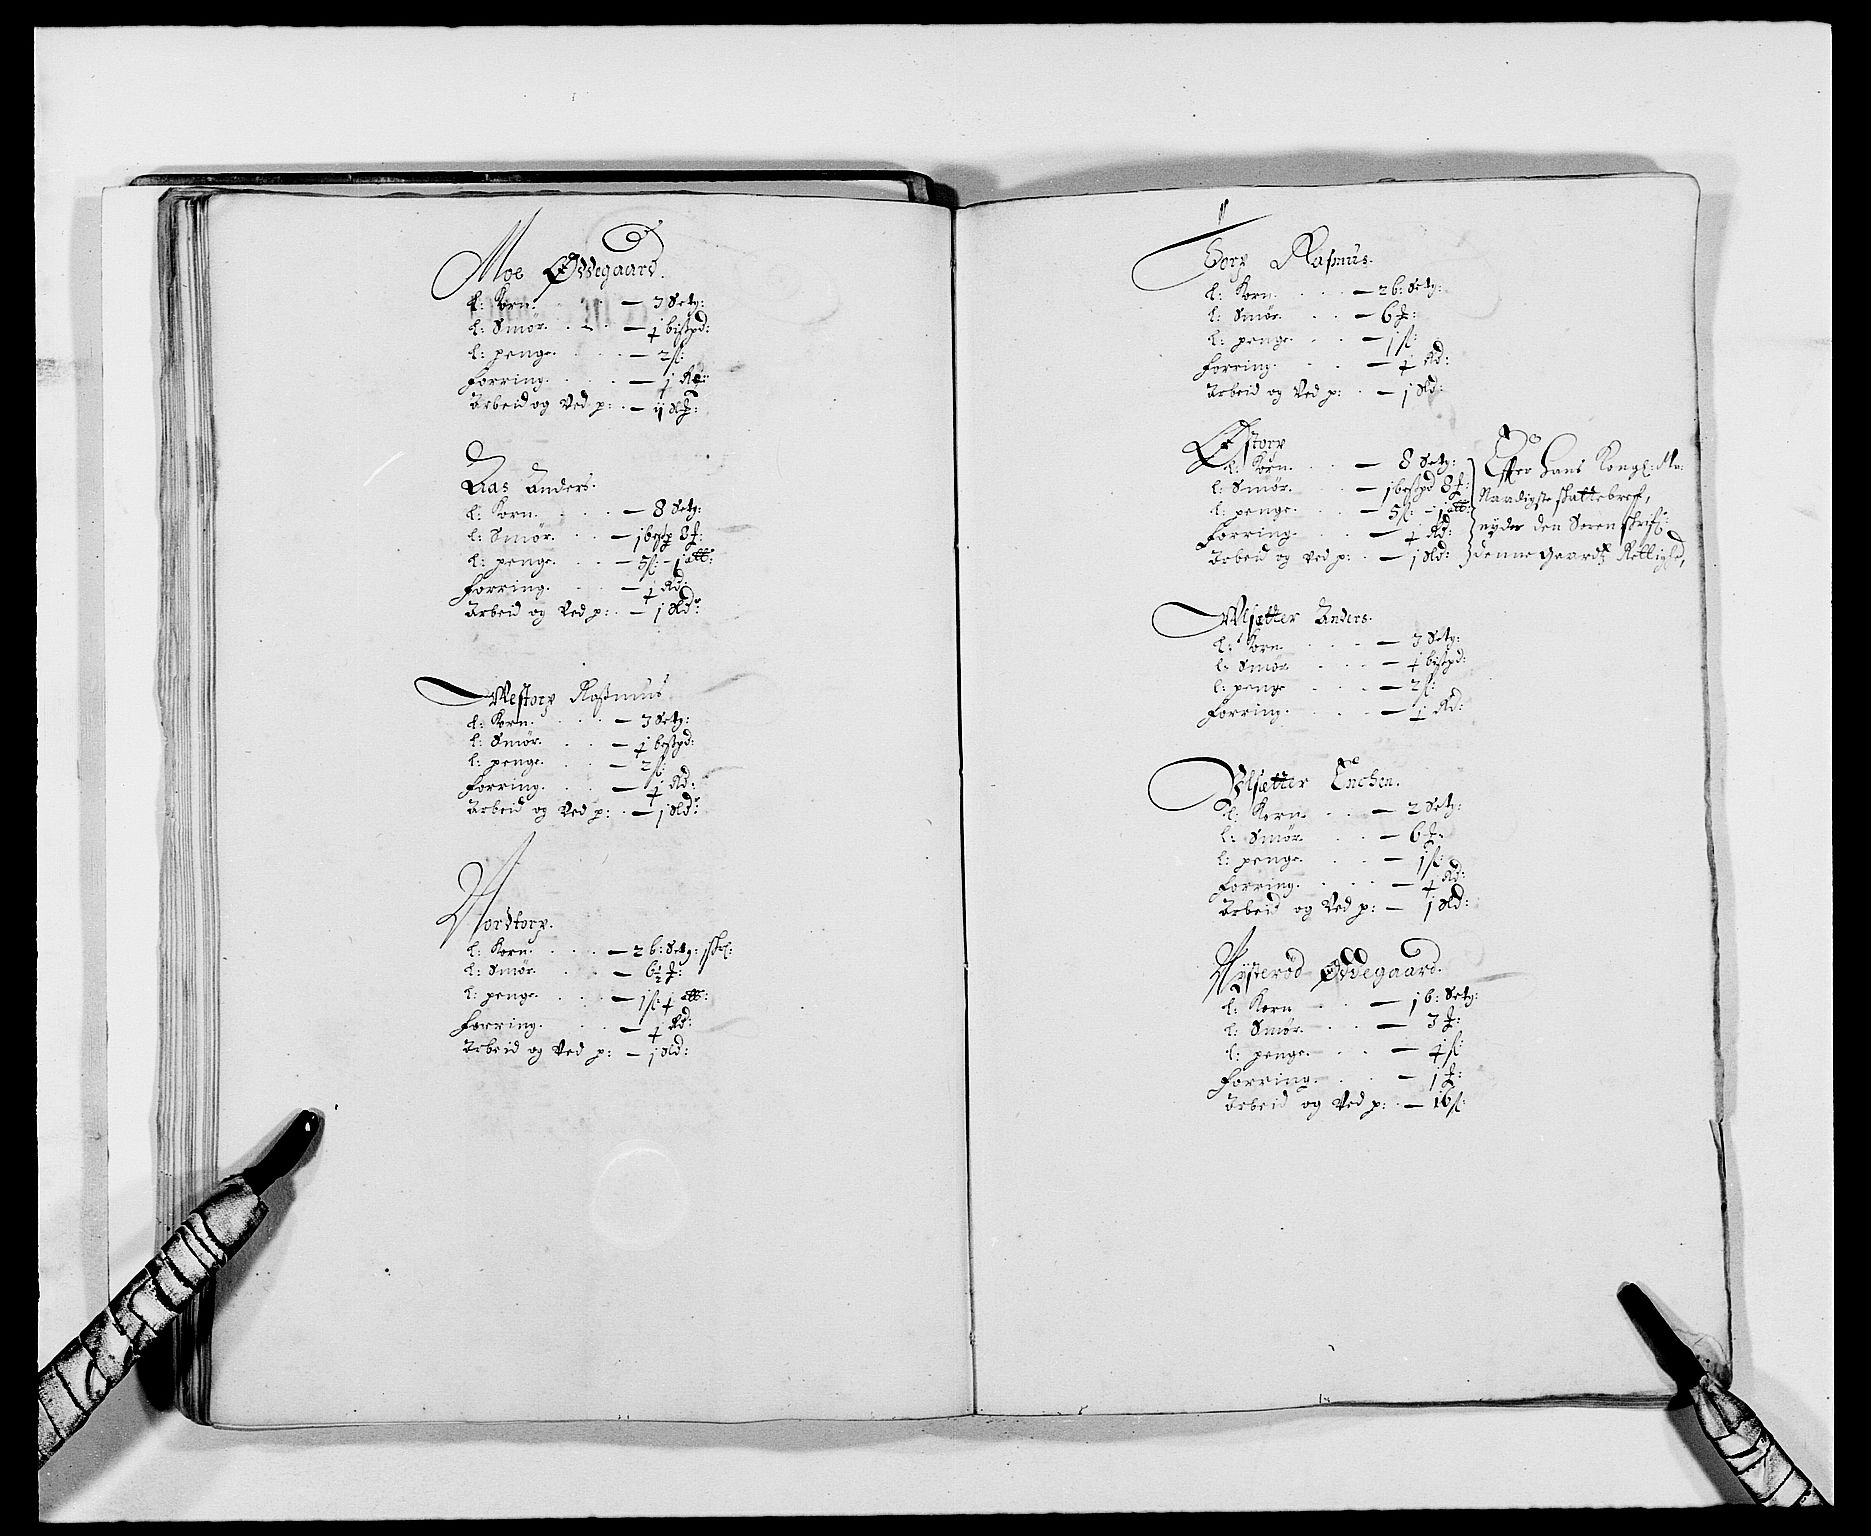 Moe Ødegaard.
l: Korn. — 3 Setg:
l: Smør. — ¼ bispd:
l: penge. — 2 ß:
Forring. — ½ Rd:
Arbeid og Ved p: —
Aas Anders.
l: Korn. — 8 Setg:
l: Smør. — 1 bispd 8 ℔:
l: penge. — 5 ß: – 1 alb:
Forring. — ½ Rd:
Arbeid og Ved p: — 1 Rld:
Westorp Rasmus
l: Korn. — 3 Setg:
l: Smør. — ¼ bispd:
l: penge. — 2 ß:
Forring. — ¼ Rd:
Arbeid og Ved p: — 1 Rld:
Nordtorp.
l: Korn. — 2 b: Setg:
l: Smør — 6½ ℔:
l: penge. — 1 ß:
Forring. — ¼ Rd:
Arbeid og Ved p: — 1 Rld:
Torp Rasmus.
l: Korn. — 2 b: Setg:
l: Smør. — 6 ℔:
l: penge. — 1 ß:
Forring. — ¼ Rd:
Arbeid og Ved p: — 1 Rld:
Østorp
l: Korn. — 8 Setg:
l: Smør. — 1 bispd 8 ℔:
l: penge. — 5 ß: – 1 alb:
Forring. — ¼ Rd:
Arbeid og Ved p: — 1 Rld:
Effter Hans Kongl: Ma:
Naadigste skattebreff,
nyder den Sorenskrif:
denne Gaards Rettighd,
Ulsætter Anders.
l: Korn. — 3 Setg:
l: Smør. — ¼ bispd:
l: penge — 2 ß:
Forring. — ½ Rd:
Ulsætter Enchen.
l: Korn. — 2 Setg:
l: Smør. — 6 ℔:
l: penge. — 1 ß:
Forring. — ¼ Rd:
Arbeid og Ved p: — 1 Rld:
Nysterød Ødegaard.
l: Korn — 1 b: Setg:
l: Smør. — 3 ℔:
l: penge. — ½ ß:
Forring. — 1 ℔:
Arbeid og Ved p: — 16 ß: